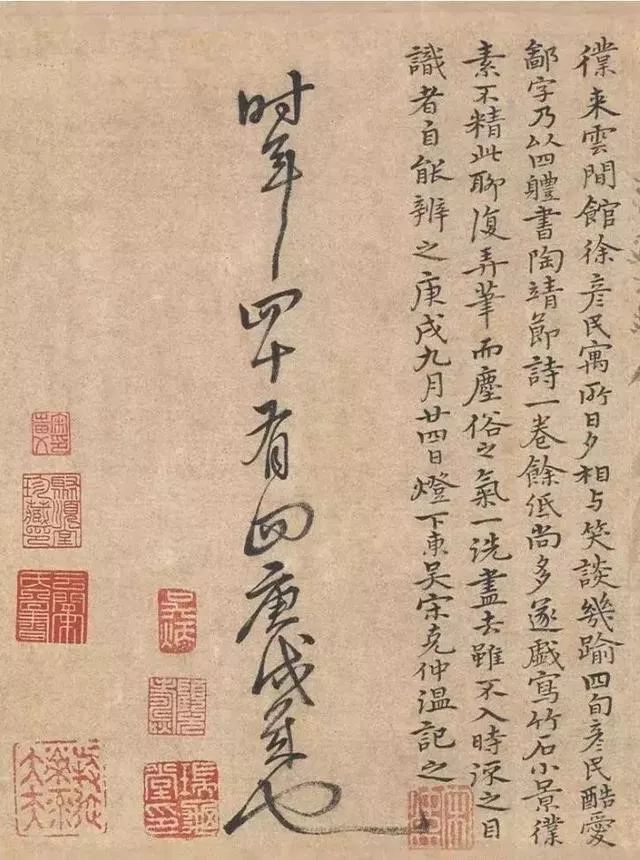 僕来雲間館徐彦民寓所日夕相与笑談幾踰四旬彦民酷愛
鄙字乃以四體書陶靖節詩一卷餘紙尚多遂戲寫竹石小景僕
素不精此聊復弄筆而塵俗之氣一洗盡去雖不入時流之目
識者自能辨之庚戌九月廿四日燈下東吴宋克仲温記之
时年四十有四庚戌年也